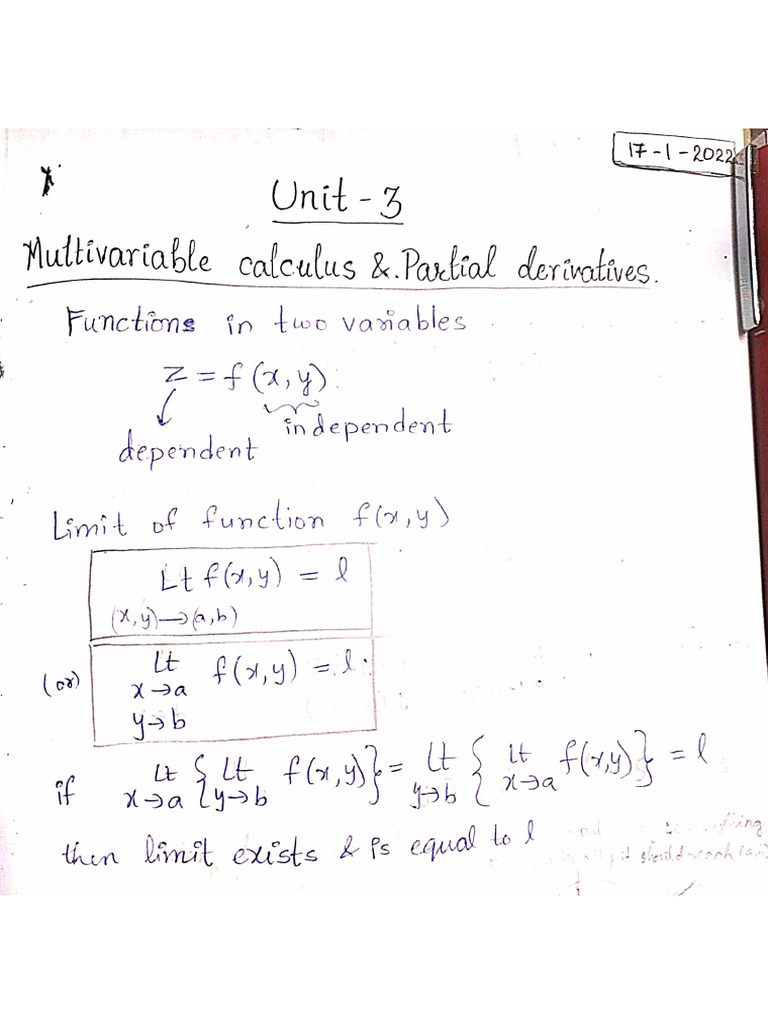 17-1-2022
Unit-3
Multivariable calculus &. Partial derivatives.
Functions in two variables
z = f(x,y)
independent
dependent
Limit of function f(x,y)
Lt f(x,y) = l
(x,y)→(a,b)
(or) Lt f(x,y) = l
x→a
y→b
if Lt { Lt f(x,y)} = Lt { Lt f(x,y)} = l
x→a y→b y→b x→a
then limit exists & is equal to l
it should